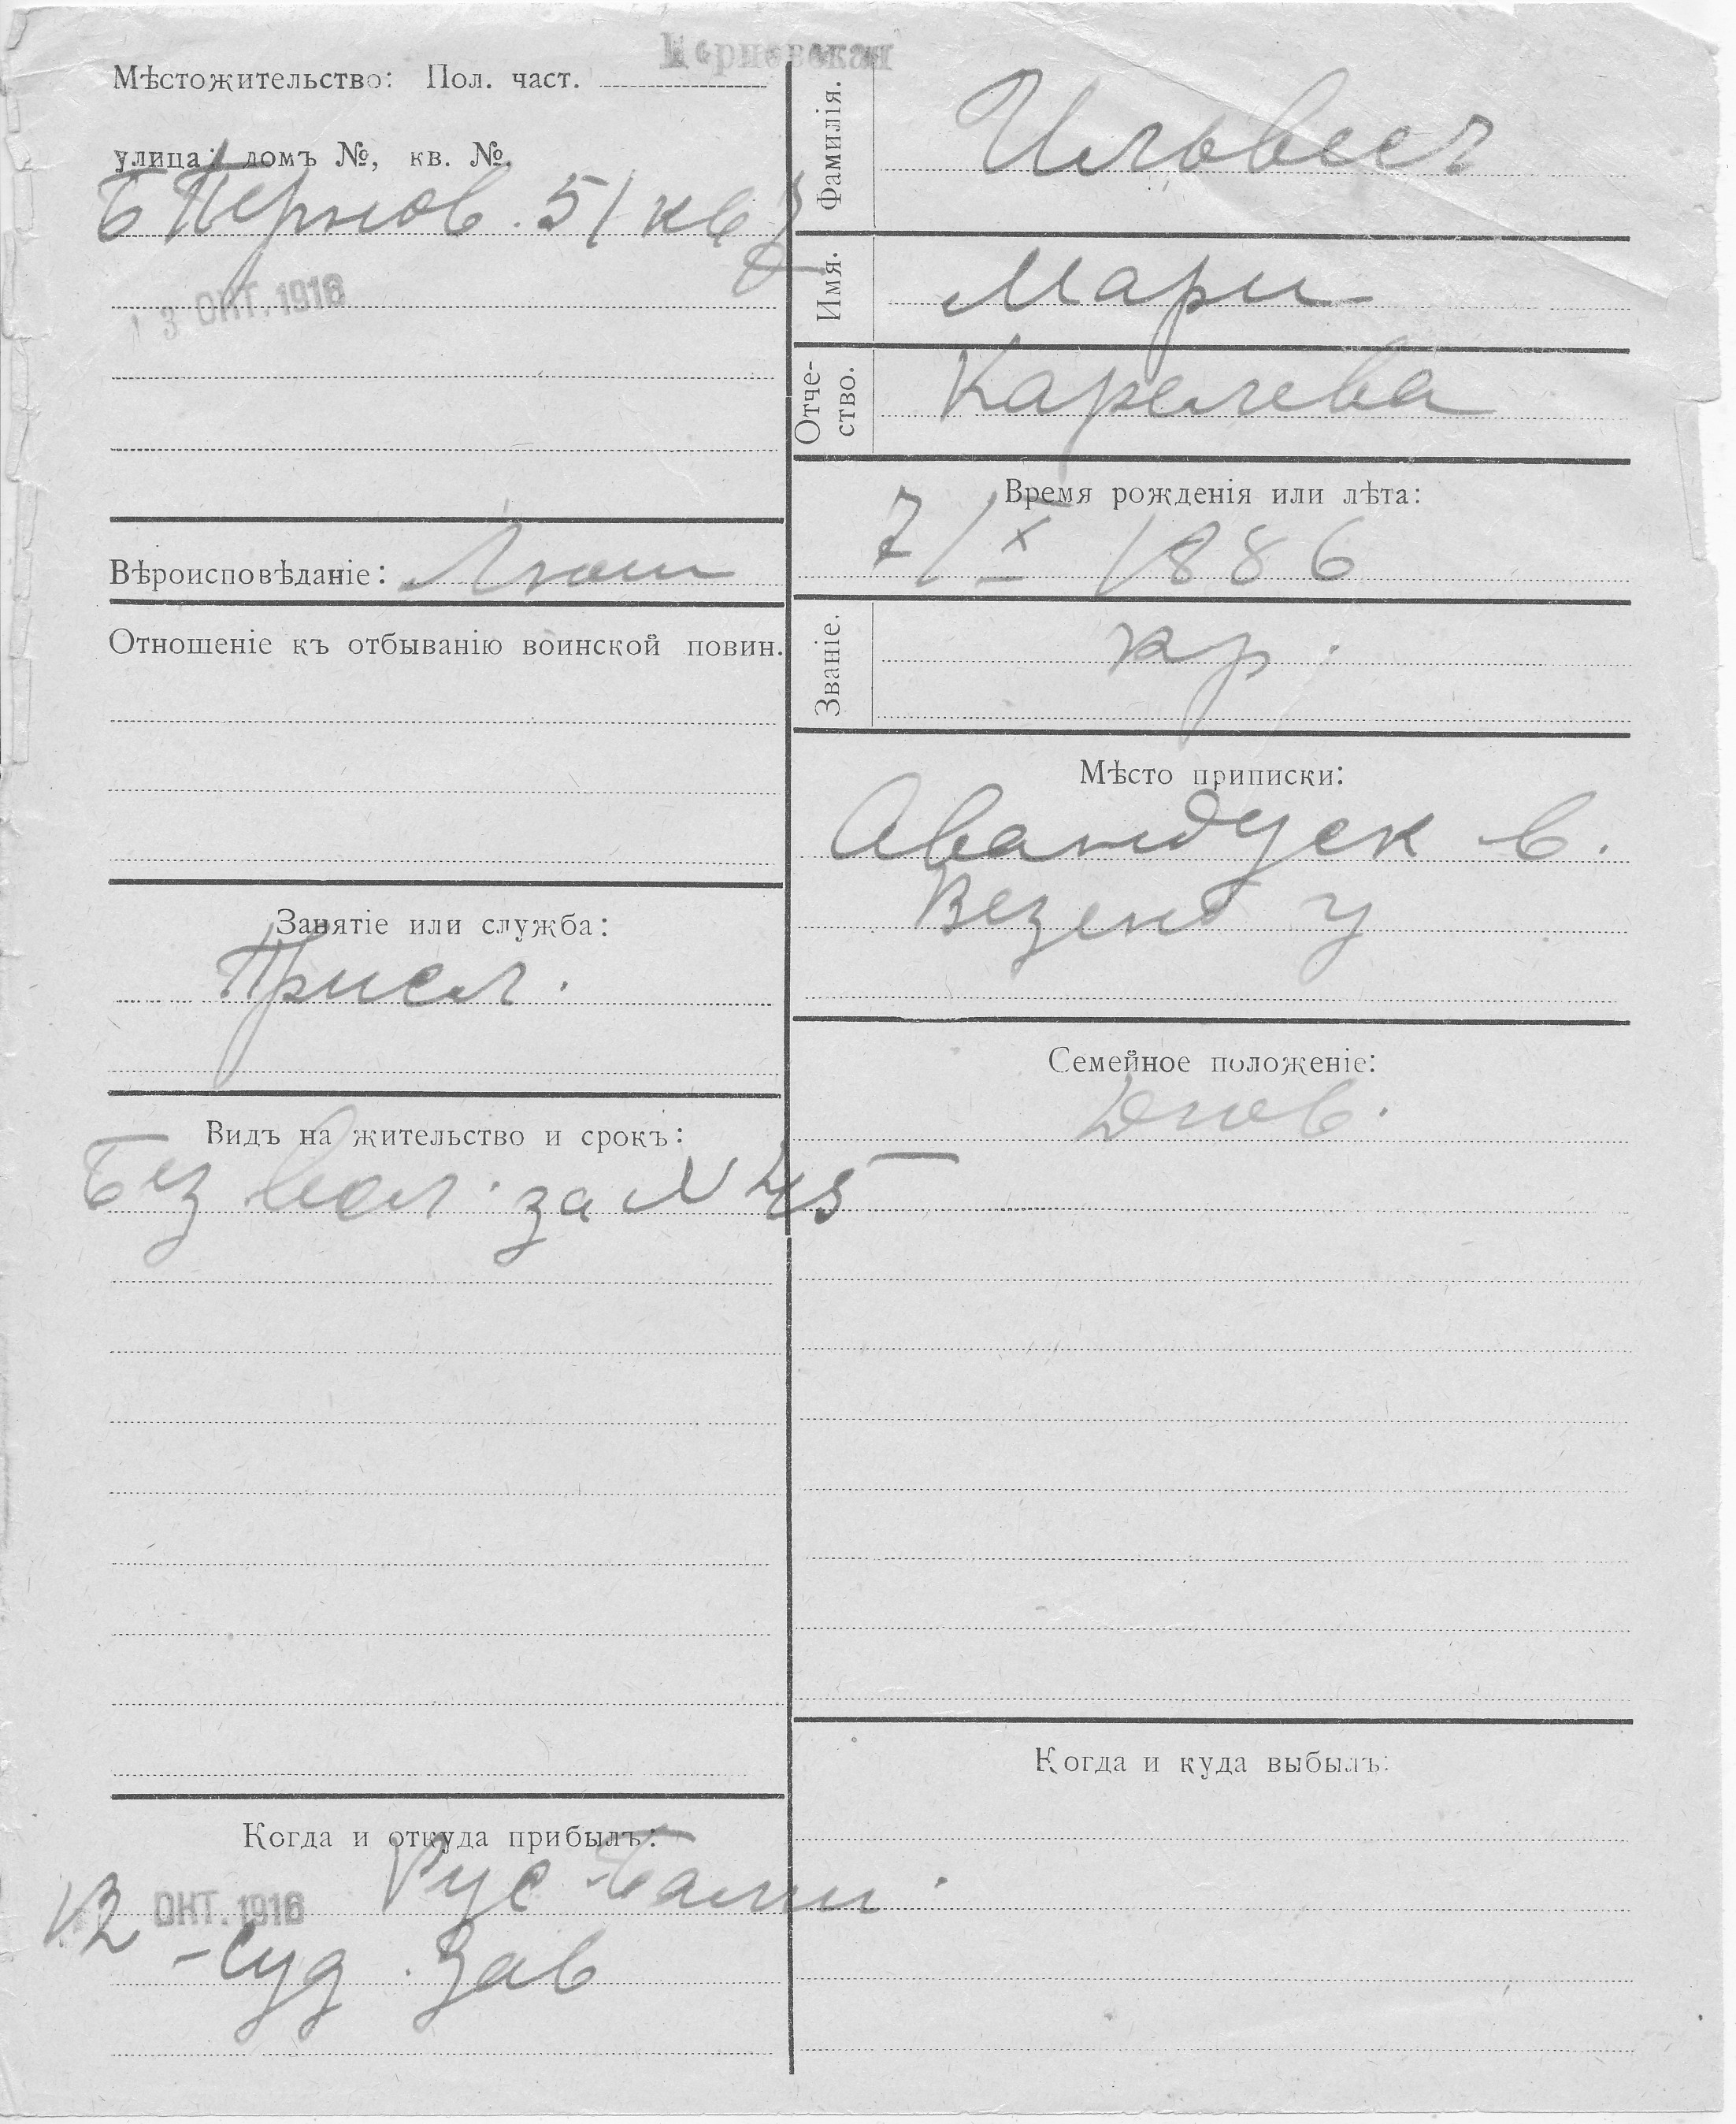 Перновская
Мѣстожительство: Пол. част.
улица; домъ №, кв. №.
Б Пернов. 51 кв
13 ОКТ. 1916
Вѣроисповѣданіе: Лют
Отношеніе къ отбыванію воинской повин.
Занятіе или служба:
Присл.
Видъ на жительство и срокъ:
Без за N 45
Когда и откуда прибылъ:
12 ОКТ. 1916 Рус Балт.
Суд. Зав
Фамилія. Ильвест
Имя. Мари
Отче-
ство. Карелева
Время рожденія или лѣта:
7/X 1886
Званіе. кр.
Мѣсто приписки:
Авандуск в.
Везенб у
Семейное положеніе:
Когда и куда выбылъ: